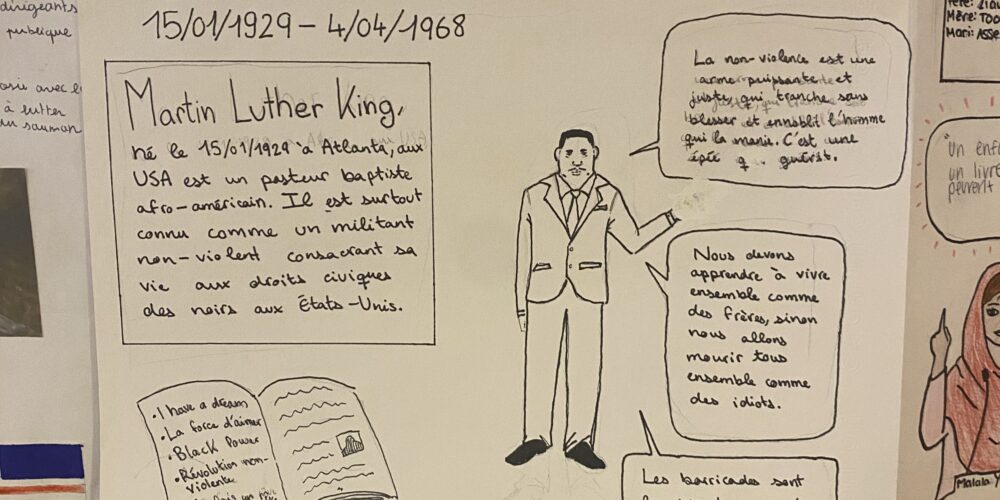 dirigeants
publique
avec
à lutter
15/01/1929 – 4/04/1968
Martin Luther King,
né le 15/01/1929 à Atlanta, aux
USA est un pasteur baptiste
afro-américain. Il est surtout
connu comme un militant
non-violent consacrant sa
vie aux droits civiques
des noirs aux États-Unis.
La non-violence est une
arme puissante et
juste, qui tranche sans
blesser et ennoblit l'homme
qui la manie. C'est une
épée q guérit.
Nous devons
apprendre à vivre
ensemble comme
des frères, sinon
nous allons
mourir tous
ensemble comme
des idiots.
Les barricades sont
• I have a dream
• La force d'aimer
• Black Power
• Révolution non-
violente
Père:
Mère:
Mari:
"Un
un
peuvent
Malala